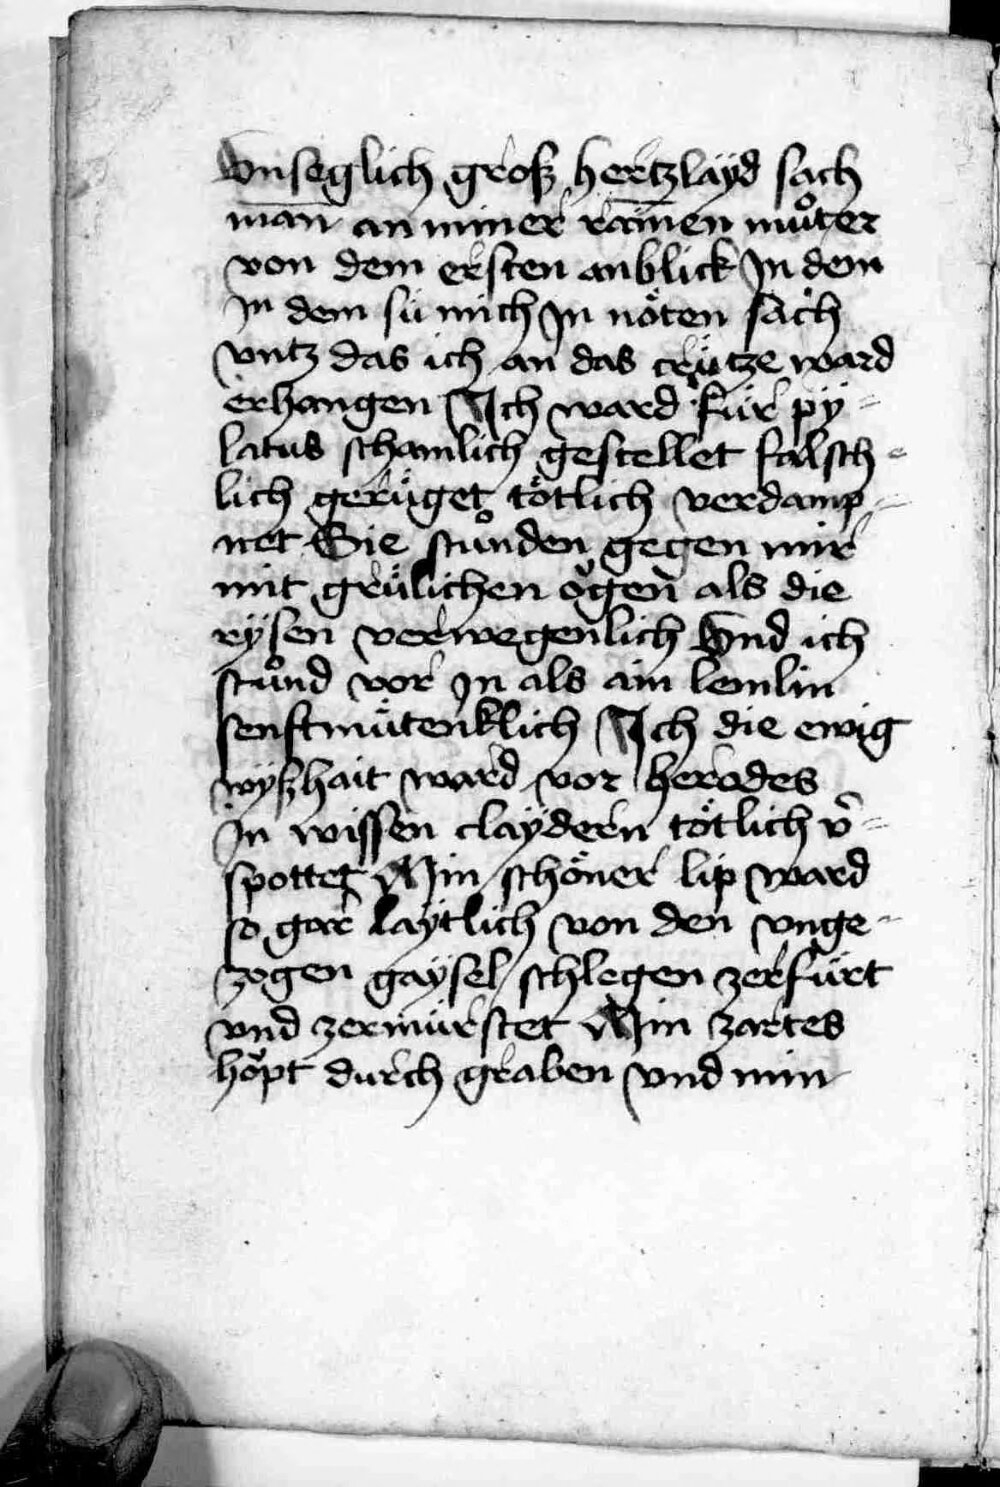 Vnseglich groß hertzlayd sach
man an miner rainen muͦter
von dem ersten anblick Jn dem
Jn dem sü mich Jn nöten sach
vntz das ich an das crütze ward
erhangen Jch ward für py=
latus schamlich gestellet falsch=
lich gerüget tötlich verdamp=
net Sie stuͦnden gegen mir
mit grülichen ögen als die
rÿsen verwegenlich Vnd ich
stuͦnd vor Jn als ain lemlin
senftmütenklich Jch die ewig
wÿßhait ward vor herodes
Jn wissen claÿdern tötlich v̄=
spottet Min schöner lip ward
so gar laÿtlich von den vnge=
zogen gaÿsel schlegen zerfürt
vnd zermürstet Min zartes
höpt durch graben vnd min